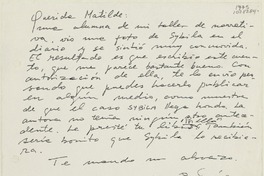 1985
Querida Matilde:
Una alumna de mi taller de narrati-
va, vio una foto de Sybila en el
diario y se sintió muy conmovida.
El resultado es que escribió este cuen-
to, que me parece bastante bueno. Con
autorización de ella, te lo envío pen-
sando que puedes hacerlo publicar
en algún medio, como muestra
de que el caso SYBILA llega hondo. La
autora no tenía ningún otro ante-
dente. Le presté tu libro. También
sería bonito que Sybila lo recibie-
ra.
Te mando un abrazo.